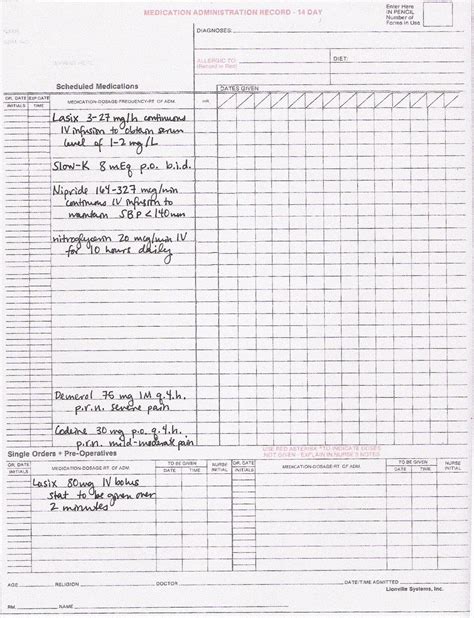 MEDICATION ADMINISTRATION RECORD - 14 DAY
Enter Here
IN PENCIL
Number of
Forms in Use
DIAGNOSES:
ALLERGIC TO
(Record in Red)
DIET:
Scheduled Medications
DATES GIVEN
OR. DATE
INITIALS
EXP DATE
TIME
MEDICATION-DOSAGE-FREQUENCY-RT OF ADM.
HR
Lasix 3-27 mg/h continuous
IV infusion to obtain serum
level of 1-2 mg/L
Slow-K 8 mEq p.o. b.i.d.
Nipride 164-327 mcg/min
continuous IV infusion to
maintain SBP < 140 mm
nitroglycerin 20 mcg/min IV
for 10 hours daily
Demerol 75 mg IM q.4h.
p.r.n. severe pain
Codeine 30 mg p.o. q.4h.
p.r.n. mild-moderate pain
Single Orders + Pre-Operatives
USE RED ASTERISK TO INDICATE DOSES
NOT GIVEN - EXPLAIN IN NURSE'S NOTES
OR. DATE
INITIALS
MEDICATION-DOSAGE-RT OF ADM.
TO BE GIVEN
DATE TIME
NURSE
INITIAL
OR. DATE
INITIALS
MEDICATION-DOSAGE-RT OF ADM.
TO BE GIVEN
DATE TIME
NURSE
INITIAL
Lasix 80mg IV bolus
stat to be given over
2 minutes
AGE RELIGION DOCTOR DATE/TIME ADMITTED
Lionville Systems, Inc.
RM. NAME